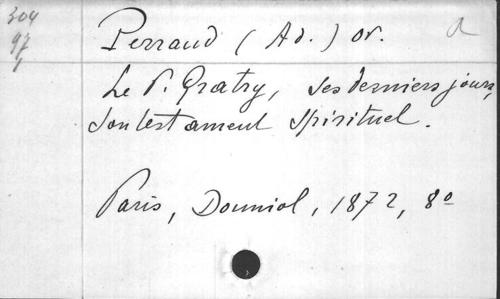 304
97
1
Perraud (Ad.) or. a
Le P. Gratry, ses derniers jours,
son testament spirituel.
Paris, Douniol, 1872, 8º